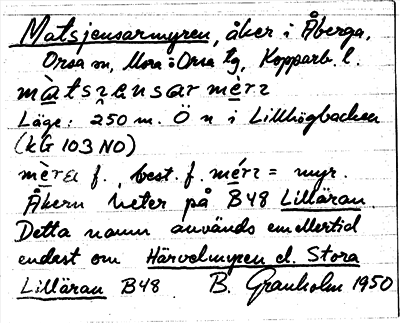 Matsjensarmyren, åker i Åberga,
Orsa sn, Mora o Orsa tg, Kopparb. l.
Läge: 250 m. Ö n i Lillhögbacken
(KG 103 NO)
f., best. f. = myr.
Åkern heter på B48 Lilläran
Detta namn används emellertid
endast om Härvelmyren el. Stora
Lilläran B48 B. Granholm 1950